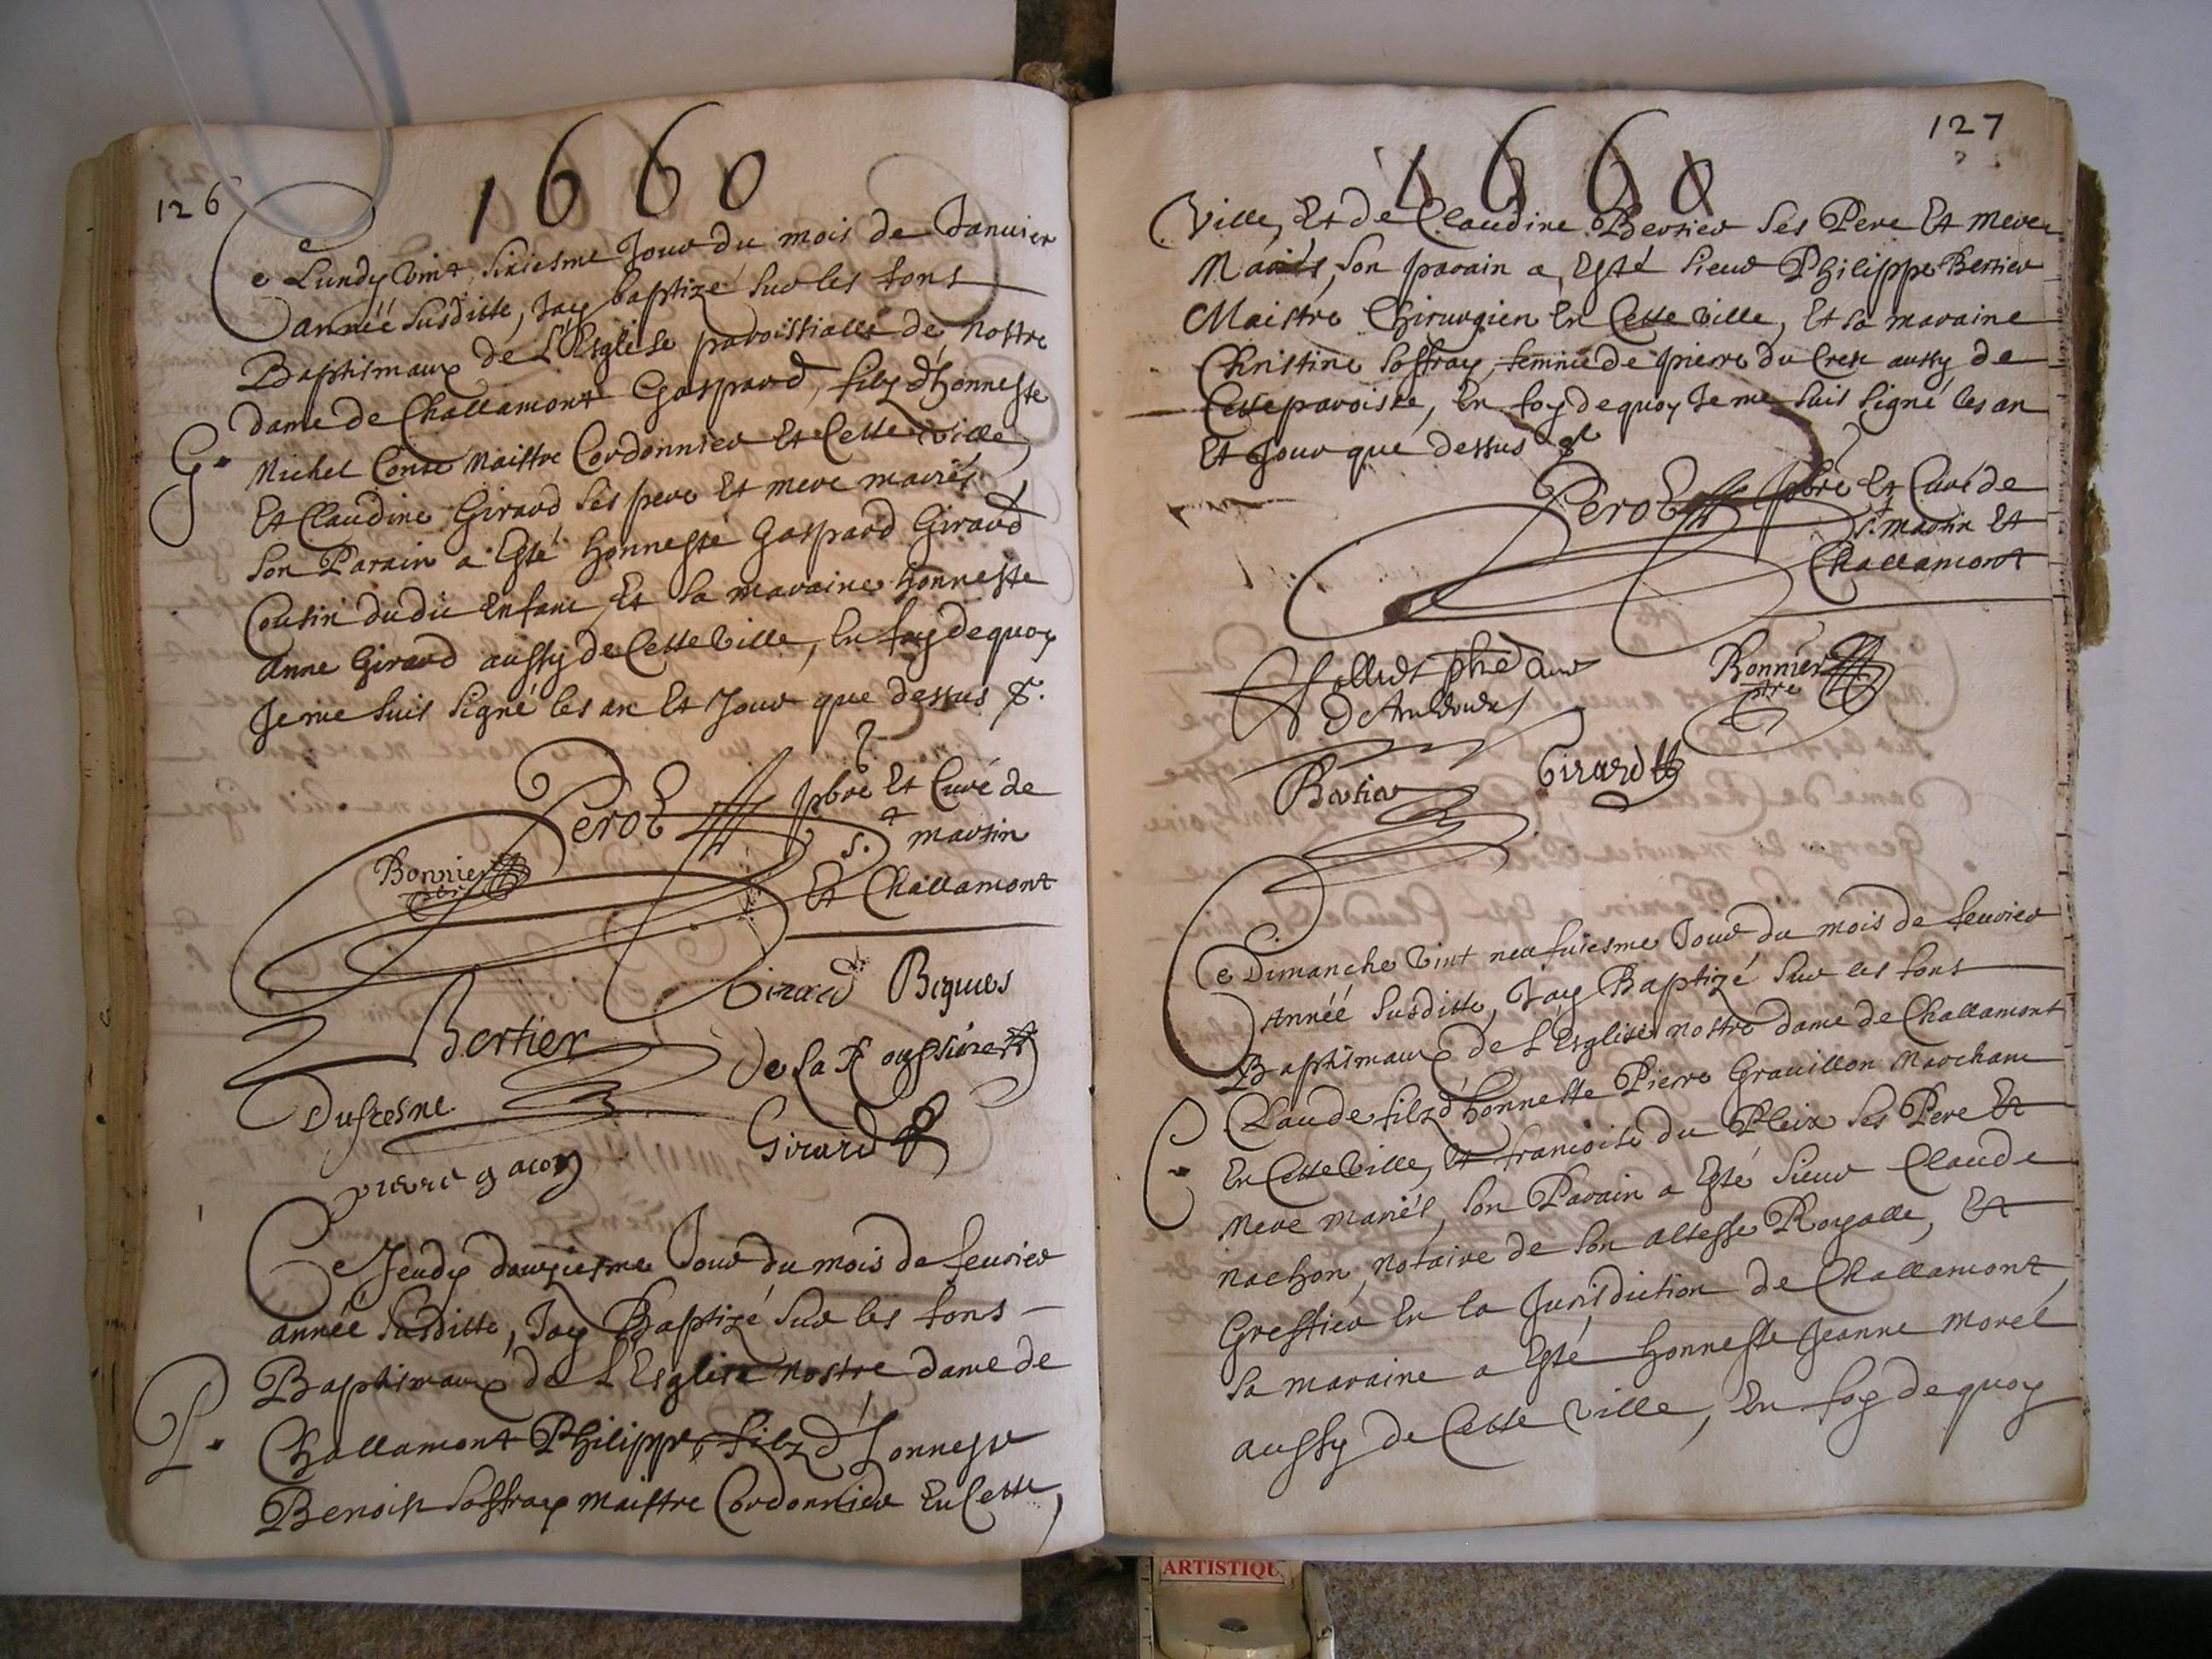 126
1660
Ce Lundy vint sixiesme Jour du mois de Januier
année susditte, Jay baptizé sur les fons
Baptismaux de L'Esglise paroissialle de nostre
dame de Challamont Gaspard, filz d'honneste
G.
Michel Conte Maistre Cordonnier Et Cette ville
Et Claudine Girard ses pere Et mere mariés
son Parain a Esté honneste Gaspard Girard
Cousin dudit Enfant, Et sa maraine honneste
Anne Girard aussy de Cette ville, En foy dequoy
Je me suis signé les an Et Jour que dessus
Perot pbre Et Curé de
St martin
Et Challamont
Bonnier
Girard Bigues
Bertier
de la
Dufresne
Girard
pierre gacon
Ce Jeudy douziesme Jour du mois de feurier
année susditte, Jay Baptizé sur les fons
Baptismaux de L'Esglise nostre dame de
P.
Challamont Philippe, filz d'honneste
Benoist Soffray maistre Cordonnier En Cette,
127
1660
Ville, Et de Claudine Bertier ses Pere Et mere
Mariés, son parain a Esté sieur Philippe Bertier
Maistre Chirurgien En Cette ville, Et sa maraine
Christine Soffray, femme de pierre du Crest aussy de
Cette paroisse, En foy dequoy Je me suis signé les an
Et Jour que dessus
Perot pbre Et Curé de
St martin Et
Challamont
Bonnier
ptre
Bertier
Girard
Ce Dimanche vint neufuiesme Jour du mois de feurier
Année susditte, Jay Baptizé sur les fons
Baptismaux de L'Esglise nostre dame de Challamont
C.
Claude filz d'honneste Pierre Grauillon Marchant
En Cette Ville, Et francoise du Pleix ses Pere Et
Mere mariés, son Parain a Esté sieur Claude
Nachon, Notaire de son altesse Royalle, Et
Greffier En la Jurisdiction de Challamont,
sa maraine a Esté honneste Jeanne Morel
aussy de Cette ville, En foy dequoy
ARTISTIQU